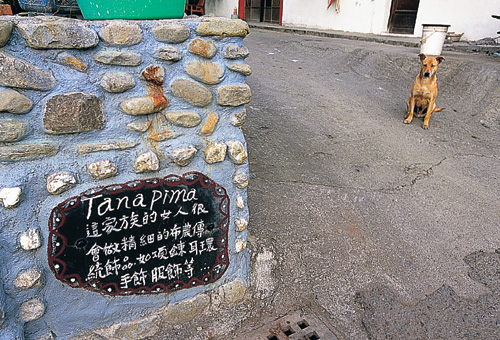 Tanapima
這家族的女人很
會做精細的布農傳
統飾品如項鍊耳環
手飾服飾等...